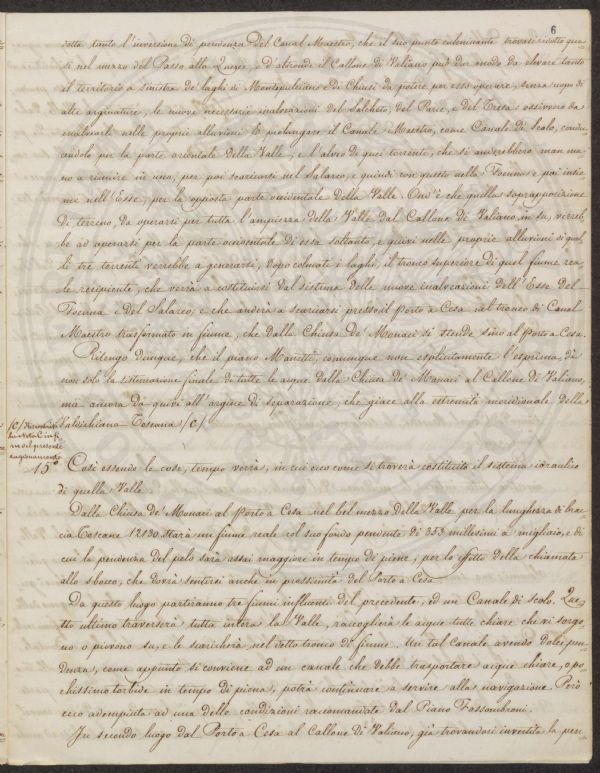 6
dotta tanto l'inversione di pendenza del Canal Maestro, che il suo punto culminante trovasi ridotto qua-
si nel mezzo del Passo alla Querce, e d'altronde il Callone di Valiano può dar modo da elevare tanto
il territorio a sinistra de' laghi di Montepulciano e di Chiusi da potere, per esso operare, senza uopo di
alte arginature, le nuove necessarie inalveazioni del Salcheto, del Parce, e del Tresa; ossivvero da
inalvearli nelle proprie alluvioni, e prolungare il Canale Maestro, come Canale di Scolo, condu-
cendolo per la parte orientale della Valle, e l'alveo di que' torrenti, che si anderebbero man ma-
no a riunire in uno, per poi scaricarsi nel Salarco, e quindi con questo nella Foenna e poi insie-
me nell'Esse, per la opposta parte occidentale della Valle. Ond'è che quella soprapposizione
di terreno, da operarsi per tutta l'ampiezza della Valle dal Callone di Valiano in su, verreb-
be ad operarsi per la parte occidentale di essa soltanto, e quivi nelle proprie alluvioni di quel-
li tre torrenti verrebbe a generarsi, dopo colmati i laghi, il tronco superiore di quel fiume rea-
le recipiente, che verrà a costituirsi dal sistema delle nuove inalveazioni dell'Esse del
Foenna e del Salarco, e che anderà a scaricarsi presso il Porto a Cesa nel tronco di Canal
Maestro trasformato in fiume, che dalla Chiusa de' Monaci si stende sino al Porto a Cesa.
Ritengo dunque, che il piano Manetti, comunque non esplicitamente l'esprima, dia
non solo la sistemazione finale di tutte le acque dalla Chiusa de' Monaci al Callone di Valiano,
ma ancora da quivi all'argine di separazione, che giace alla estremità meridionale della
Valdichiana Toscana (C)
(C) Riscontrisi
la Nota C in fi-
ne del presente
ragionamento
15º Così essendo le cose, tempo verrà, in cui ecco come si troverà costituito il sistema idraulico
di quella Valle.
Dalla Chiusa de' Monaci al Porto a Cesa nel bel mezzo della Valle per la lunghezza di brac-
cia Toscane 12130 starà un fiume reale col suo fondo pendente di 353 millesimi a migliaio, e di
cui la pendenza del pelo sarà assai maggiore in tempo di piene, per lo effetto della chiamata
allo sbocco, che dovrà sentirsi anche in prossimità del Porto a Cesa.
Da questo luogo partiranno tre fiumi influenti del precedente, ed un Canale di scolo. Que-
sto ultimo traverserà tutta intera la Valle, raccoglierà le acque tutte chiare che vi sorgo-
no o piovono su, e le scaricherà nel detto tronco di fiume. Un tal Canale avendo dolce pen-
denza, come appunto si conviene ad un canale che debbe trasportare acque chiare, o po-
chissimo torbide in tempo di piena, potrà continuare a servire alla navigazione. Però
ecco adempiuta ad una delle condizioni raccomandate dal Piano Fossombroni.
In secondo luogo dal Porto a Cesa al Callone di Valiano, già trovandosi invertita la pen-